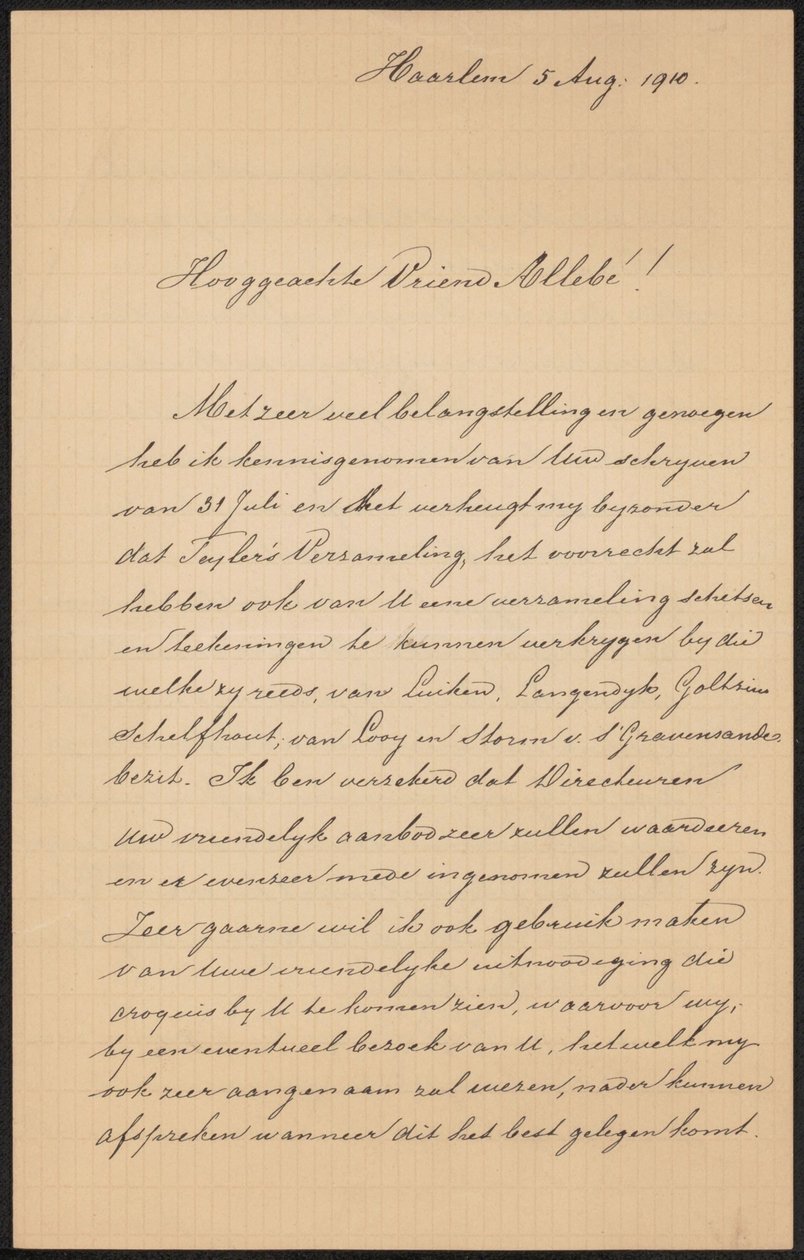 Haarlem 5 Aug: 1910.
Hooggeachte Vriend Allebé!
Met zeer veel belangstelling en genoegen
heb ik kennisgenomen van Uw schryven
van 31 Juli en het verheugt my byzonder
dat Teyler's Verzameling, het voorrecht zal
hebben ook van U eene verzameling schetsen
en teekeningen te kunnen verkrygen by die
welke zy reeds, van Luiken, Langendyk, Goltzius
Schelfhout, van Looy en Storm v. s'Gravensande.
bezit. Ik ben verzekerd dat Directeuren
Uw vriendelyk aanbod zeer zullen waardeeren
en er evenzeer mede ingenomen zullen zyn.
Zeer gaarne wil ik ook gebruik maken
van Uwe vriendelyke uitnoodiging die
croquis by U te komen zien, waarvoor wy,
by een eventueel bezoek van U, hetwelk my
ook zeer aangenaam zal wezen, nader kunnen
afspreken wanneer dit het best gelegen komt.